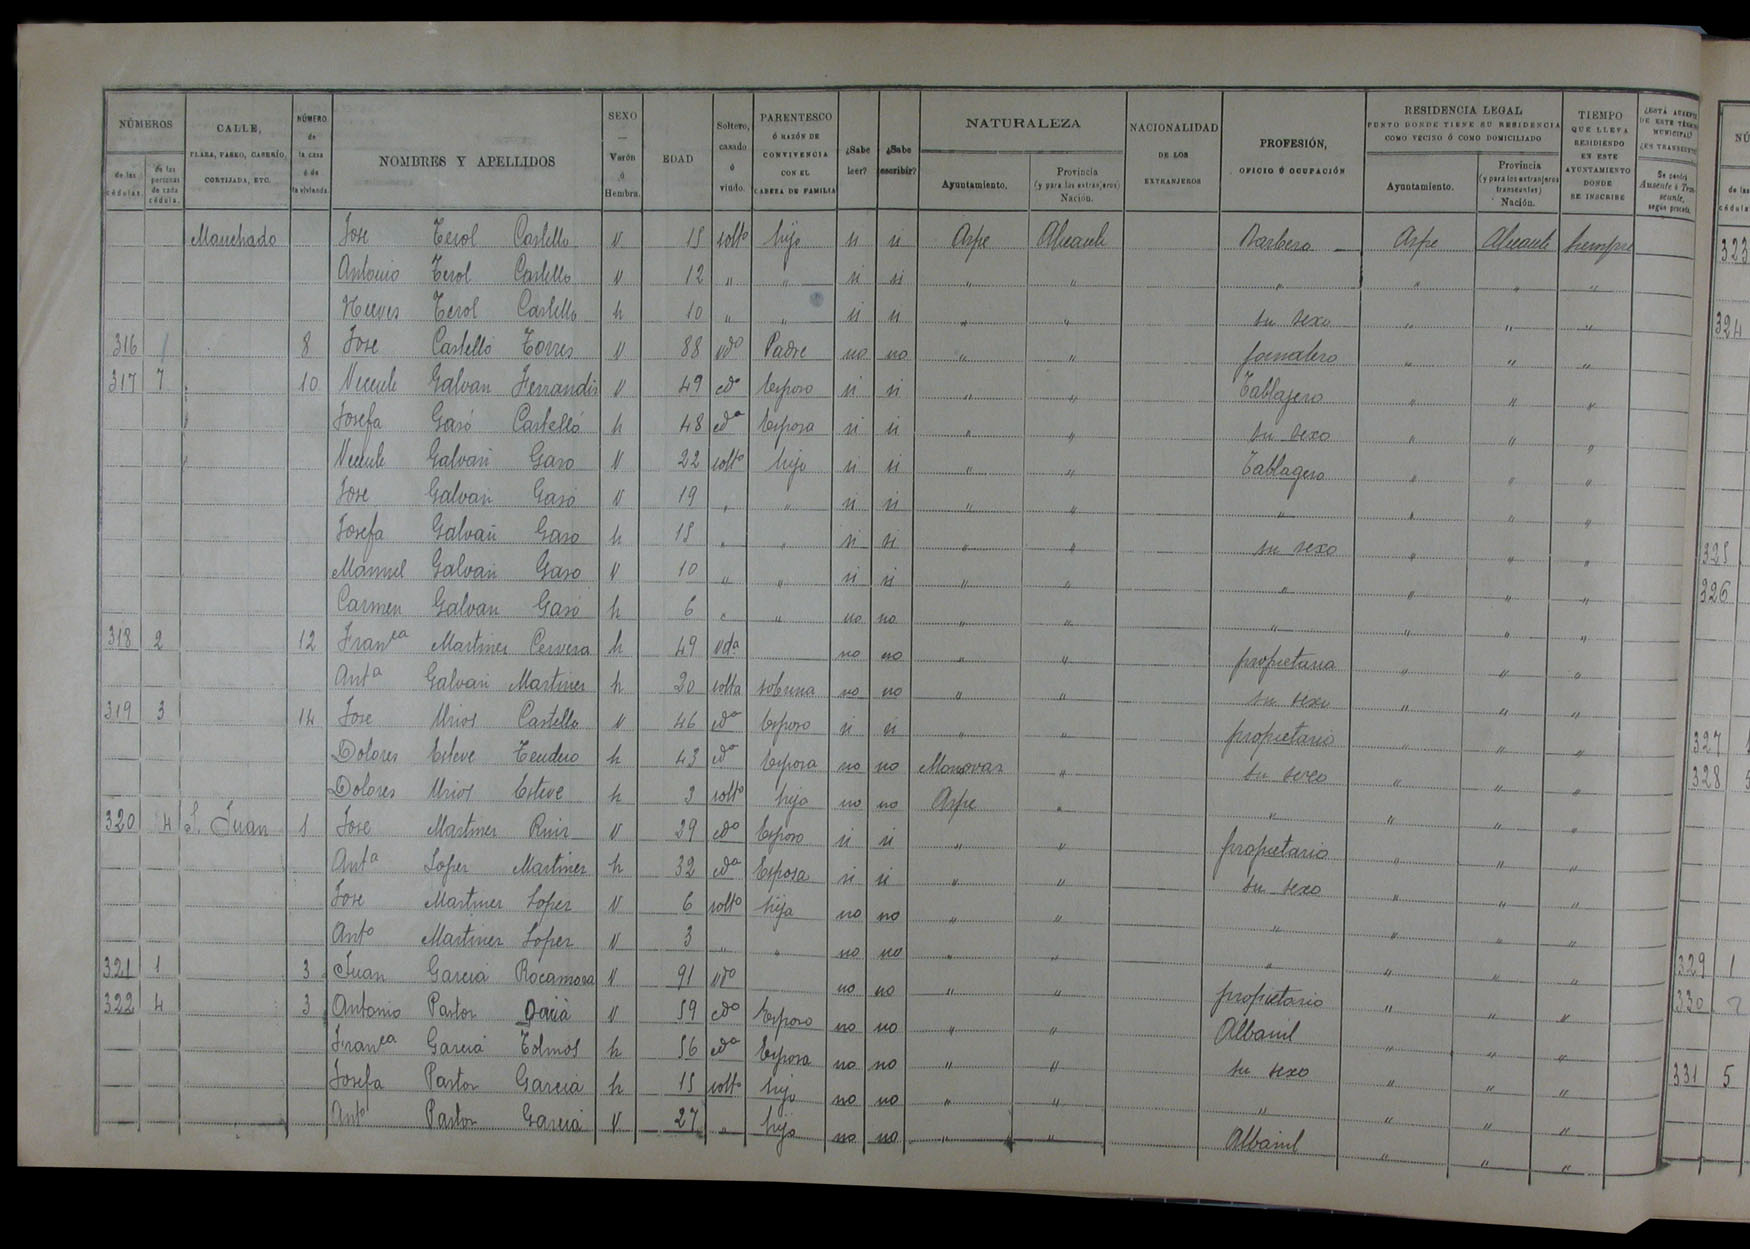 NÚMEROS
de las cédulas.
de las personas de cada cédula.
CALLE,
PLAZA, PASEO, CASERÍO, CORTIJADA, ETC.
NÚMERO de la casa ó de la vivienda.
NOMBRES Y APELLIDOS
SEXO — Varón ó Hembra.
EDAD
Soltero, casado ó viudo.
PARENTESCO Ó RAZÓN DE CONVIVENCIA CON EL CABEZA DE FAMILIA
¿Sabe leer?
¿Sabe escribir?
NATURALEZA
Ayuntamiento.
Provincia (y para los extranjeros) Nación.
NACIONALIDAD DE LOS EXTRANJEROS
PROFESIÓN, OFICIO Ó OCUPACIÓN
RESIDENCIA LEGAL
PUNTO DONDE TIENE SU RESIDENCIA COMO VECINO Ó COMO DOMICILIADO
Ayuntamiento.
Provincia (y para los extranjeros transeuntes) Nación.
TIEMPO QUE LLEVA RESIDIENDO EN ESTE AYUNTAMIENTO DONDE SE INSCRIBE
Manchado Jose Terol Castello V 15 soltº hijo si si Aspe Alicante Barbero Aspe Alicante Siempre
Antonio Terol Castello V 12 " " si si " " " " " "
Nieves Terol Castello h 10 " " si si " " su sexo " " "
316 1 8 Jose Castelló Torres V 88 vdº Padre no no " " jornalero " " "
317 7 10 Vicente Galvan Ferrandis V 49 cdº Esposo si si " " Tablajero " " "
Josefa Gasó Castelló h 48 cdª Esposa si si " " su sexo " " "
Vicente Galvan Gaso V 22 soltº hijo si si " " Tablagero " " "
Jose Galvan Gasó V 19 " " si si " " " " " "
Josefa Galvan Gaso h 15 " " si si " " su sexo " " "
Manuel Galvan Gaso V 10 " " si si " " " " " "
Carmen Galvan Gasó h 6 " " no no " " " " " "
318 2 12 Franca Martines Cervera h 49 vdª no no " " propietaria " " "
Antª Galvan Martines h 20 solta sobrina no no " " su sexo " " "
319 3 14 Jose Mrios Castello V 46 cdº Esposo si si " " propietario " " "
Dolores Esteve h 43 cdª Esposa no no Monovar " su sexo " " "
Dolores Mrios Esteve h 3 soltº hija no no Aspe " " " " "
320 4 S. Juan 1 Jose Martines Ruiz V 29 cdº Esposo si si " " propietario " " "
Antª Lopez Martines h 32 cdª Esposa si si " " su sexo " " "
Jose Martines Lopez V 6 soltº hijo no no " " " " " "
Antº Martines Lopez V 3 " " no no " " " " " "
321 1 3 Juan Garcia Rocamora V 91 vdº no no " " propietario " " "
322 4 3 Antonio Pastor V 59 cdº Esposo no no " " Albanil " " "
Franca Garcia Tolmos h 56 cdª Esposa no no " " su sexo " " "
Josefa Pastor Garcia h 15 soltº hija no no " " " " " "
Antº Pastor Garcia V 27 " hijo no no " " Albanil " " "
323
324
325
326
327
328
329 1
330
331 5